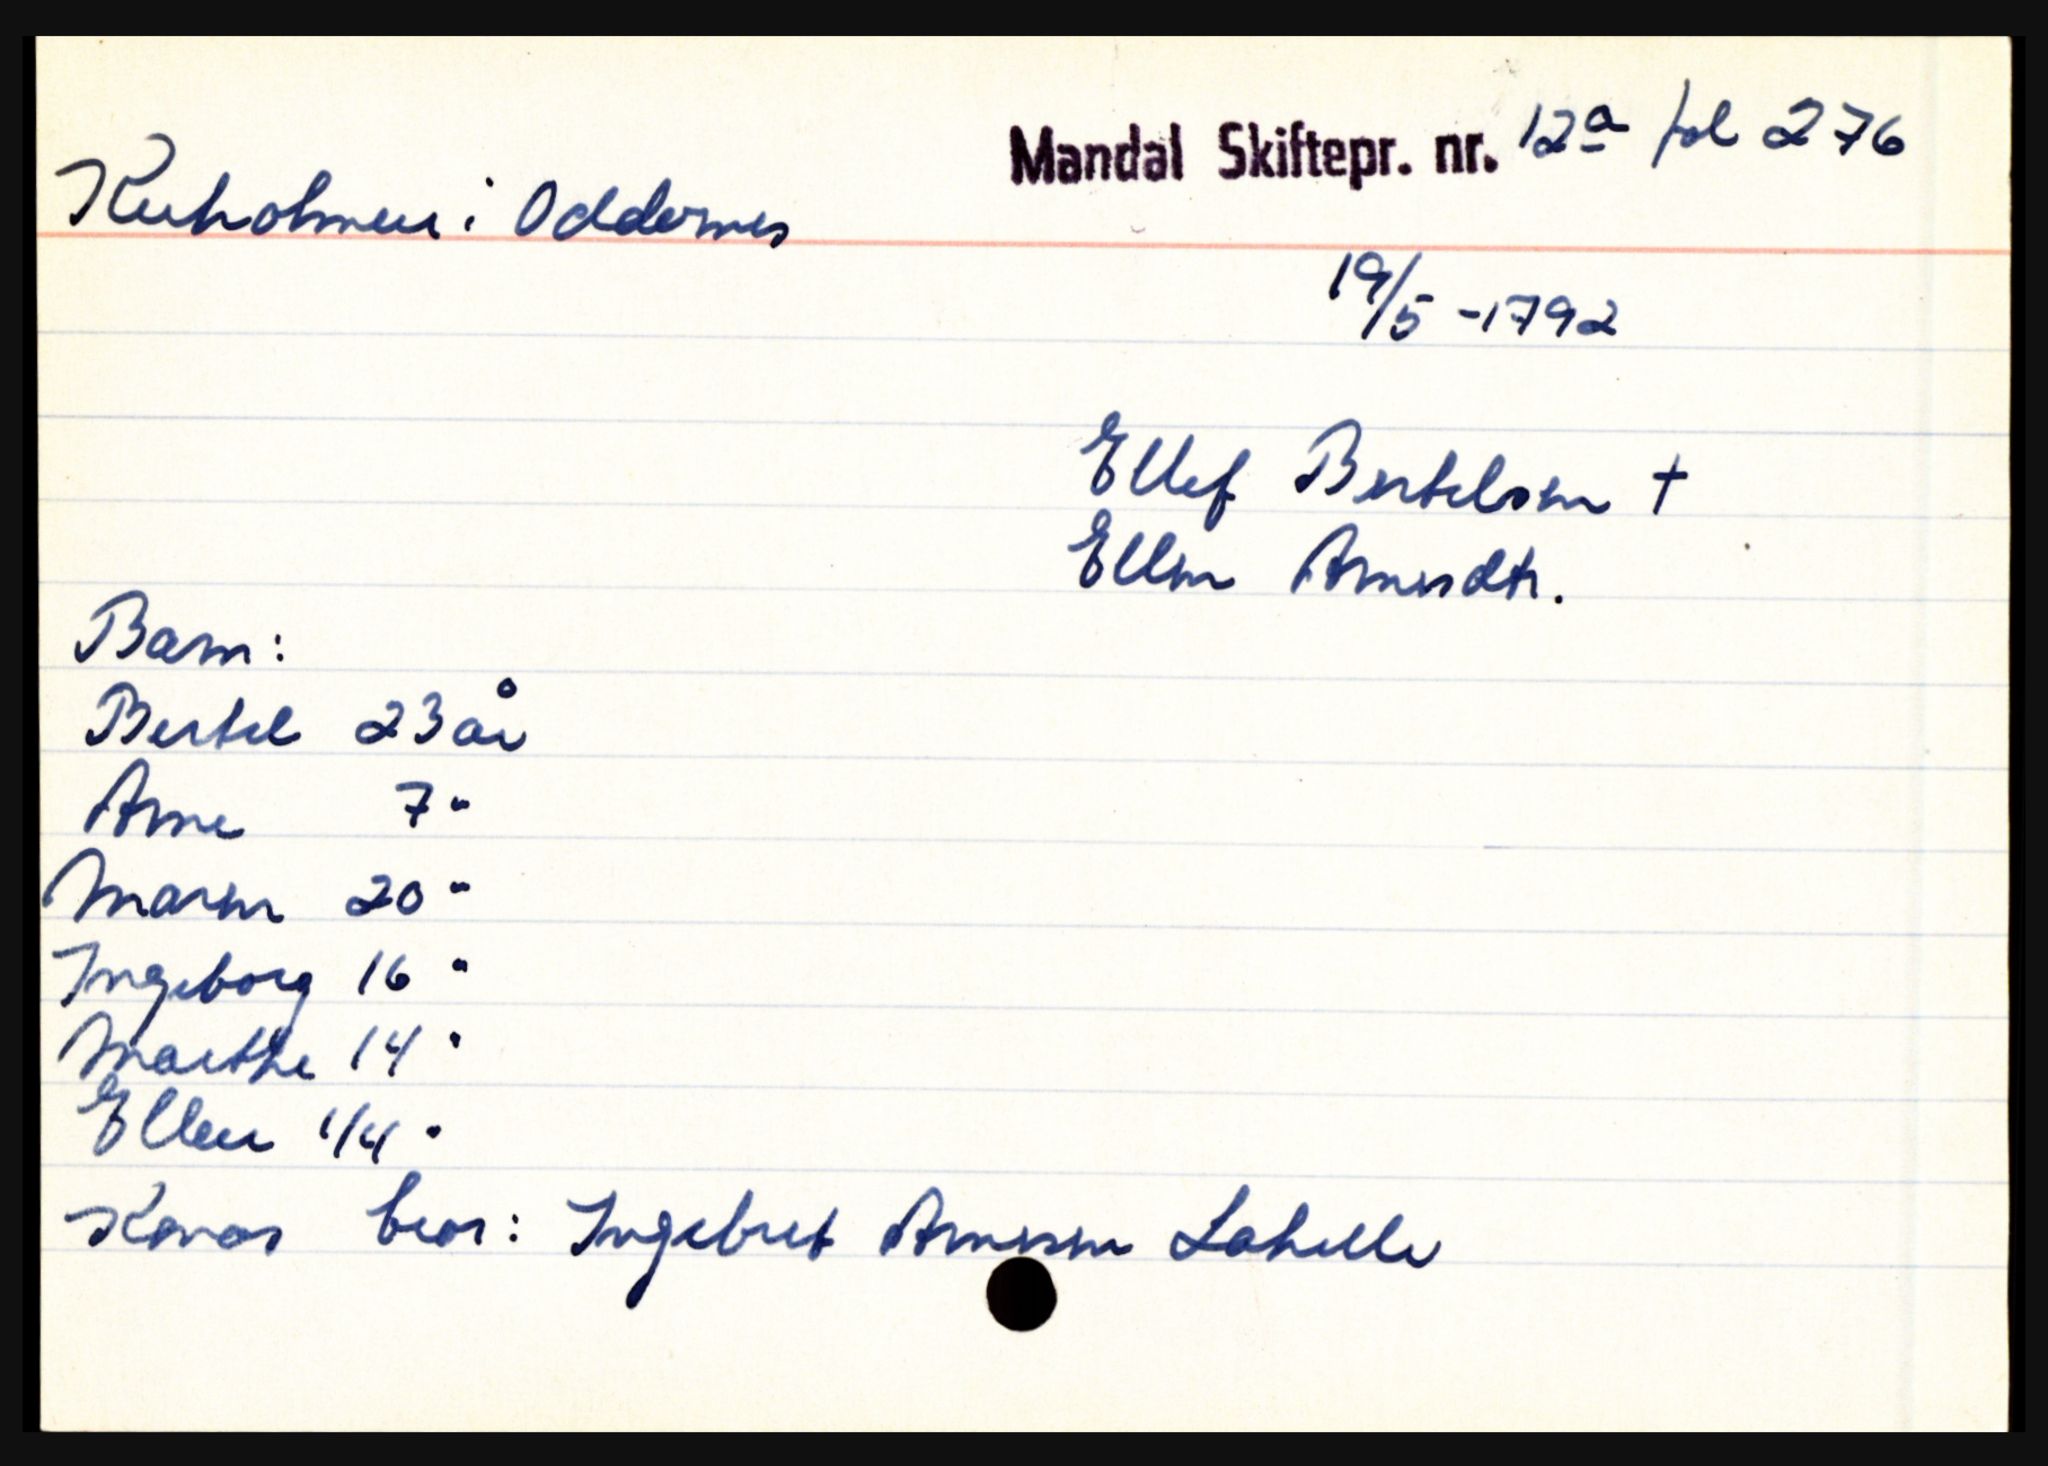 Mandal Skiftepr. nr. 12a fol 276
Kuholmen i Oddernes
19/5 -1792
Ellef Bertelsen †
Ellen Arnesdtr.
Barn:
Bertel 23 år
Arne 7 "
Maren 20 "
Ingeborg 16 "
Marthe 14 "
Ellen 1/4 "
Konas bror: Ingebret Arnesen Lahelle